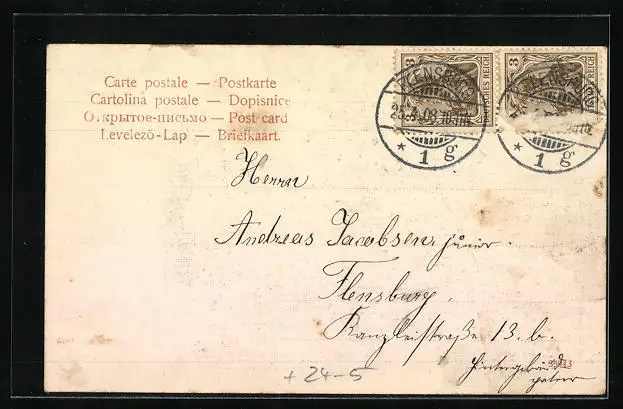 Carte postale — Postkarte
Cartolina postale — Dopisnice
Открытое-письмо — Post card
Levelező-Lap — Briefkaart.
3
DEUTSCHES REICH
3
DEUTSCHES REICH
FLENSBURG
* 1 g
FLENSBURG
* 1 g
Herrn
Andreas Jacobsen junior.
Flensburg.
Kanzleistraße 13. b.
Hintergebäude
+ 24-5